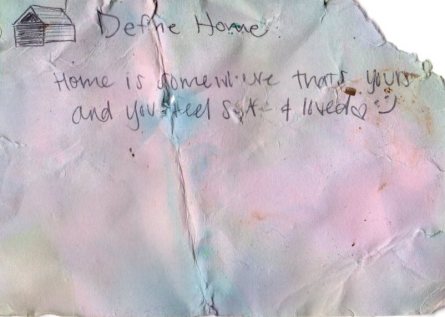 Define Home:
Home is somewhere that's yours
and you feel safe & loved ♡ :)